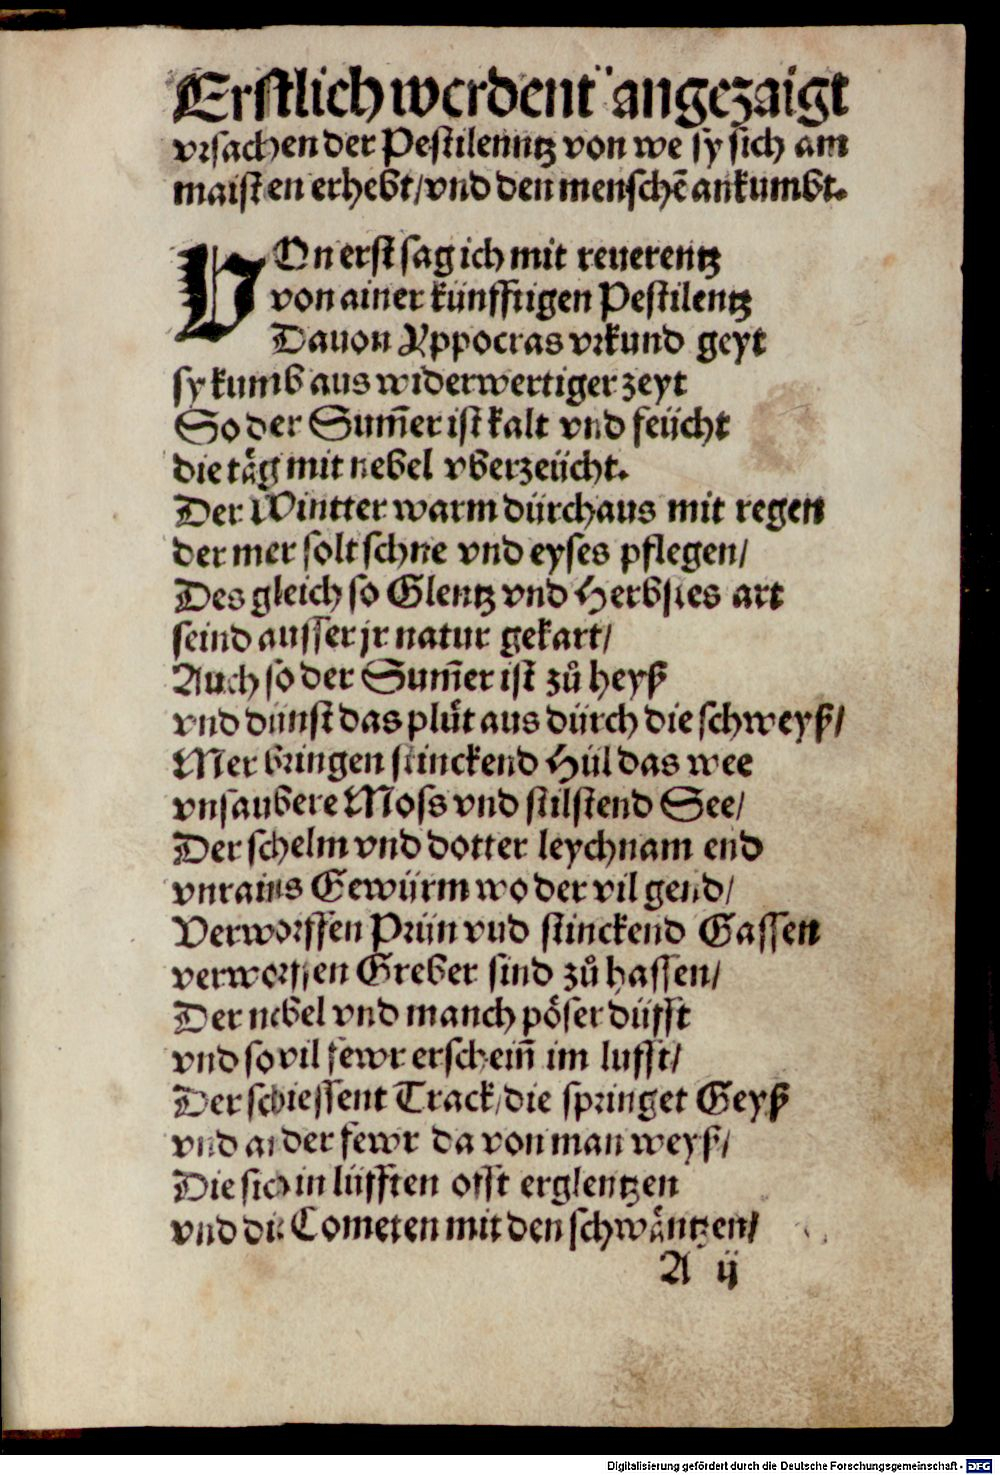 Erstlich werdent angezaigt
vrsachen der Pestilenntz von we sy sich am
maisten erhebt/vnd den menschē ankumbt.
VOn erst sag ich mit reuerentz
von ainer künfftigen Pestilentz
Dauon Yppocras vrkund geyt
sy kumb aus widerwertiger zeyt
So der Sum̄er ist kalt vnd feücht
die täg mit nebel vberzeücht.
Der Wintter warm dürchaus mit regen
der mer solt schne vnd eyses pflegen/
Des gleich so Glentz vnd Herbstes art
seind ausser jr natur gekart/
Auch so der Sum̄er ist zů heyß
vnd dünst das plůt aus dürch die schweyß/
Mer bringen stinckend Hül das wee
vnsaubere Moss vnd stilstend See/
Der schelm vnd dotter leychnam end
vnrains Gewürm wo der vil gend/
Verworffen Prün vnd stinckend Gassen
verworffen Greber sind zů hassen/
Der nebel vnd manch pöser düfft
vnd so vil fewr erschein̄ im lufft/
Der schiessent Track/die springet Geyß
vnd ander fewr da von man weyß/
Die sich in lüfften offt erglentzen
vnd die Cometen mit den schwäntzen/
A ij
Digitalisierung gefördert durch die Deutsche Forschungsgemeinschaft - DFG